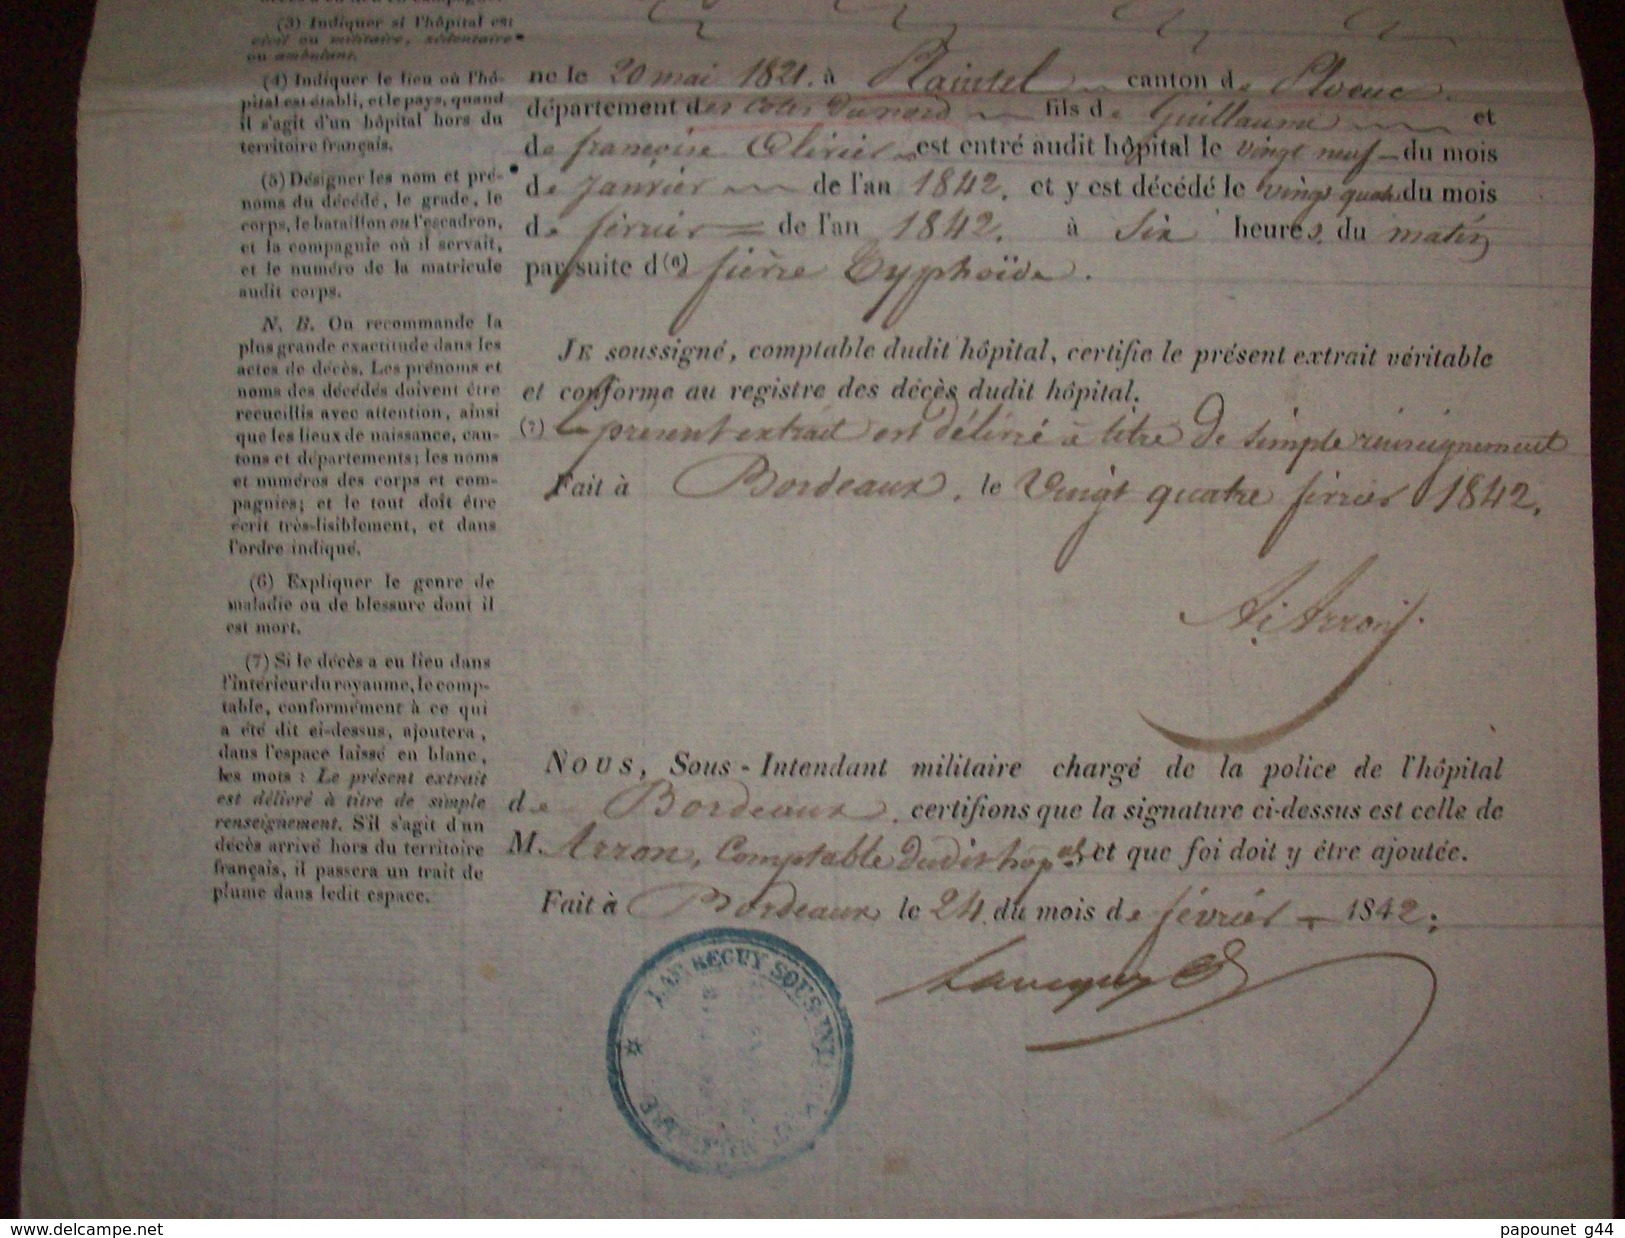 (3) Indiquer si l'hôpital est
civil ou militaire, sédentaire
ou ambulant.
(4) Indiquer le lieu où l'hô-
pital est établi, et le pays, quand
il s'agit d'un hôpital hors du
territoire français.
(5) Désigner les nom et pré-
noms du décédé, le grade, le
corps, le bataillon ou l'escadron,
et la compagnie où il servait,
et le numéro de la matricule
audit corps.
N. B. On recommande la
plus grande exactitude dans les
actes de décès. Les prénoms et
noms des décédés doivent être
recueillis avec attention, ainsi
que les lieux de naissance, can-
tons et départements; les noms
et numéros des corps et com-
pagnies; et le tout doit être
écrit très-lisiblement, et dans
l'ordre indiqué.
(6) Expliquer le genre de
maladie ou de blessure dont il
est mort.
(7) Si le décès a eu lieu dans
l'intérieur du royaume, le comp-
table, conformément à ce qui
a été dit ci-dessus, ajoutera,
dans l'espace laissé en blanc,
les mots : Le présent extrait
est délivré à titre de simple
renseignement. S'il s'agit d'un
décès arrivé hors du territoire
français, il passera un trait de
plume dans ledit espace.
né le 20 mai 1821. à Plaintel canton de Ploeuc
département des Cotes du nord fils de Guillaume et
de françoise Olivier est entré audit hôpital le vingt neuf du mois
de Janvier de l'an 1842. et y est décédé le vingt quatre du mois
de février de l'an 1842. à Six heures du matin
par suite d(6) fièvre Typhoïde.
JE soussigné, comptable dudit hôpital, certifie le présent extrait véritable
et conforme au registre des décès dudit hôpital.
(7) Le present extrait est délivré à titre de simple renseignement
Fait à Bordeaux, le Vingt quatre février 1842.
Arron
NOUS, Sous-Intendant militaire chargé de la police de l'hôpital
de Bordeaux, certifions que la signature ci-dessus est celle de
M. Arron, Comptable dudit hopal et que foi doit y être ajoutée.
Fait à Bordeaux le 24 du mois de février 1842.
SOUS INT
www.delcampe.net
papounet_g44